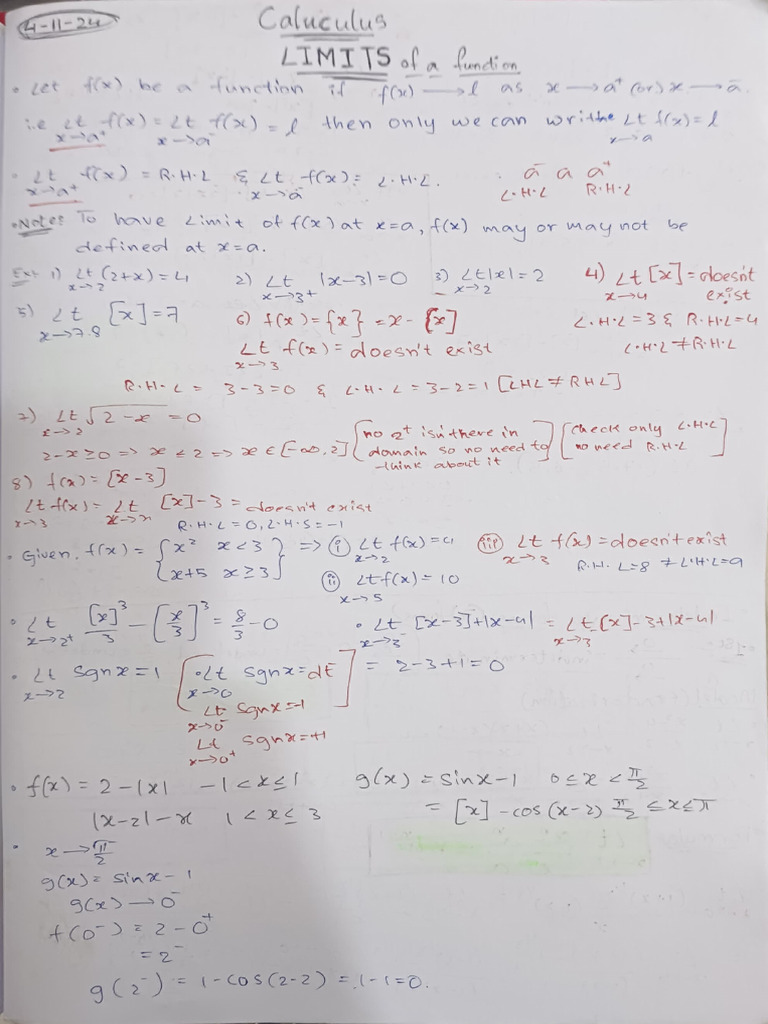 4-11-24
Caluculus
LIMITS of a function
• Let f(x) be a function if f(x) → l as x → a⁺ (or) x → a⁻
i.e Lt x→a⁺ f(x) = Lt x→a⁻ f(x) = l then only we can write Lt x→a f(x) = l
• Lt x→a⁺ f(x) = R.H.L & Lt x→a⁻ f(x) = L.H.L. a⁻ a a⁺
L.H.L R.H.L
• Note: To have Limit of f(x) at x=a, f(x) may or may not be
defined at x=a.
Ex: 1) Lt x→2 (2+x) = 4 2) Lt x→3⁺ |x-3| = 0 3) Lt x→2 |x| = 2 4) Lt x→4 [x] = doesn't exist
5) Lt x→7.8 [x] = 7 6) f(x) = {x} = x - [x] L.H.L = 3 & R.H.L = 4
Lt x→3 f(x) = doesn't exist L.H.L ≠ R.H.L
R.H.L = 3-3=0 & L.H.L = 3-2=1 [LHL ≠ RHL]
7) Lt x→2 √2-x = 0
2-x≥0 => x ≤ 2 => x ∈ [-∞, 2] [no 2⁺ isn't there in domain so no need to think about it] [check only L.H.L no need R.H.L]
8) f(x) = [x-3]
Lt x→3 f(x) = Lt [x]-3 = doesn't exist
R.H.L = 0, L.H.S = -1
• Given, f(x) = { x² x<3 } => (i) Lt x→2 f(x) = 4 (iii) Lt x→3 f(x) = doesn't exist
{ x+5 x≥3 } (ii) Lt x→5 f(x) = 10 R.H.L=8 ≠ L.H.L=9
• Lt x→2⁺ [x]³/3 - [x/3]³ = 8/3 - 0 • Lt x→3⁻ [x-3]+|x-4| = Lt x→3⁻ [x]-3+|x-4|
• Lt x→2 sgnx = 1 [• Lt x→0 sgnx = dE = 2-3+1=0
Lt x→0⁻ sgnx = -1
Lt x→0⁺ sgnx = +1]
• f(x) = 2-|x| -1<x≤1 g(x) = sinx-1 0≤x<π/2
|x-2|-x 1<x≤3 = [x]-cos(x-2) π/2≤x≤π
• x→π/2
g(x) = sinx-1
g(x) → 0⁻
f(0⁻) = 2-0⁺
= 2⁻
g(2⁻) = 1-cos(2-2) = 1-1=0.